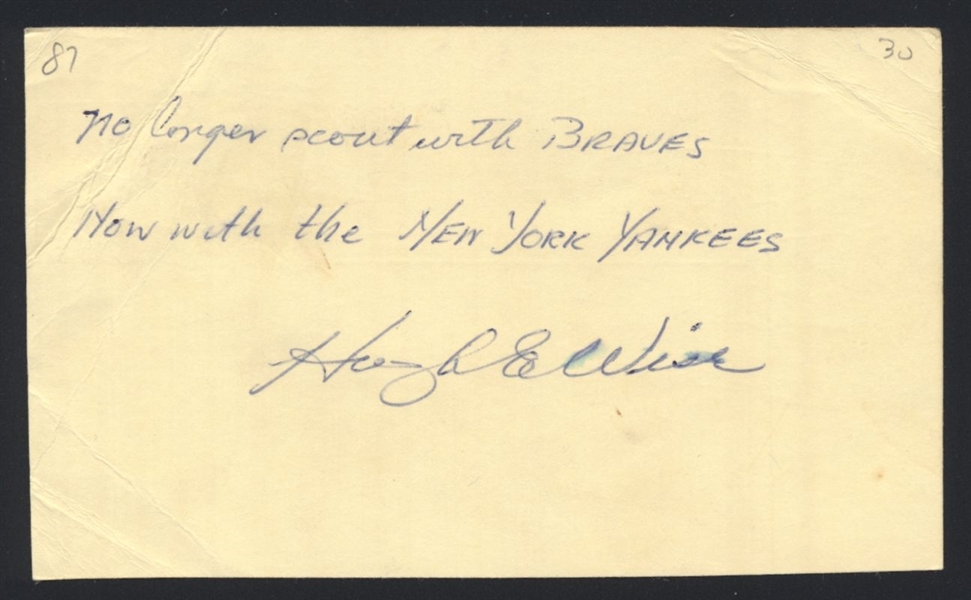 87 30
No longer scout with BRAVES
Now with the NEW YORK YANKEES
Hugh E Wise